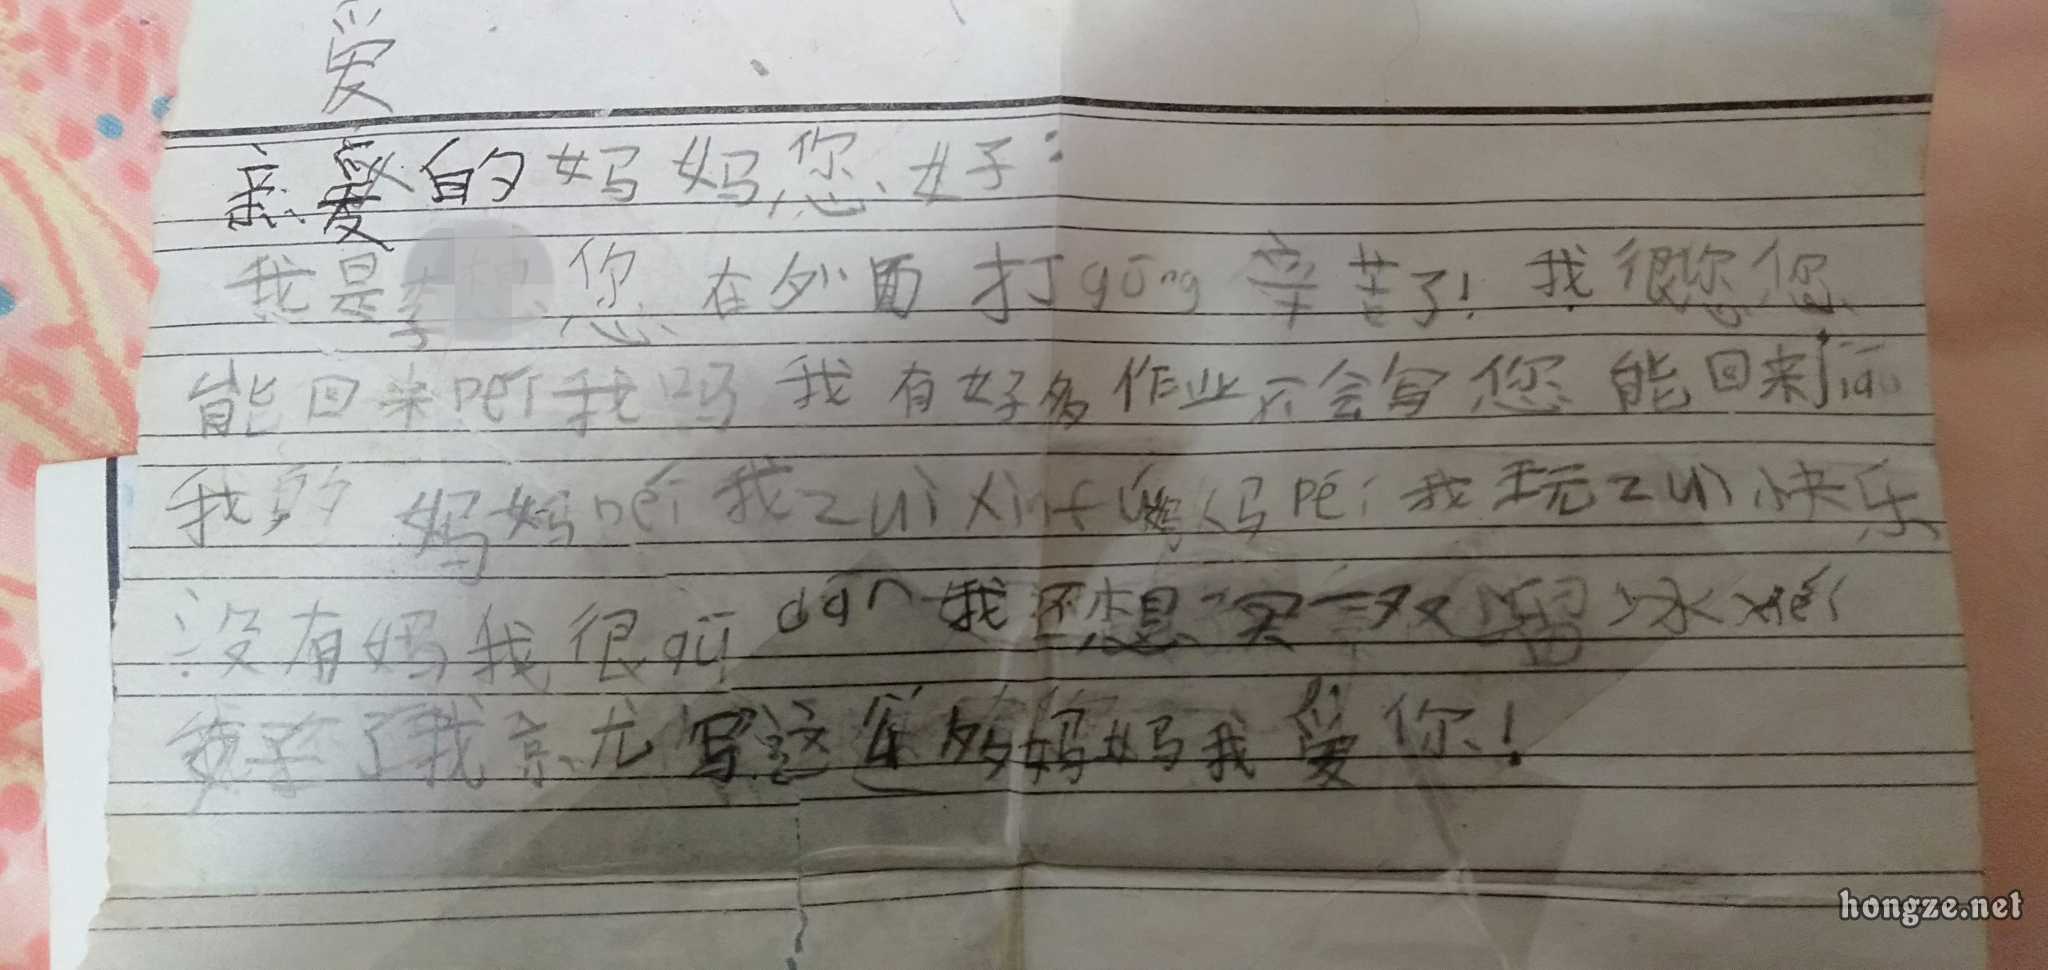 爱
亲爱的妈妈您好：
我是李 您在外面打gōng辛苦了！我很您您
能回来péi我吗我有好多作业不会写您能回来jiāo
我 妈妈péi我zuìxìnfú妈妈péi我玩zuì快乐
没有妈我很gū dān我还想买一双溜冰xié
我 了我京尤写这 多妈妈我爱你！
hongze.net